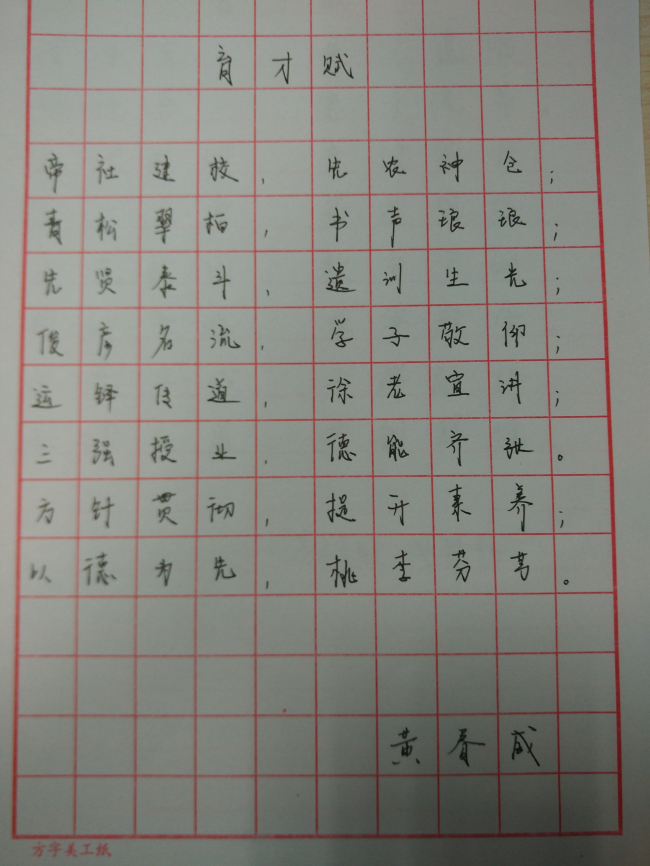 育才赋
帝社建校，先农神仓；
青松翠柏，书声琅琅；
先贤泰斗，遗训生光；
俊彦名流，学子敬仰；
运铎传道，徐老宣讲；
三强授业，德能齐张。
方针贯彻，提升素养；
以德为先，桃李芬芳。
黄春威
方字美工纸